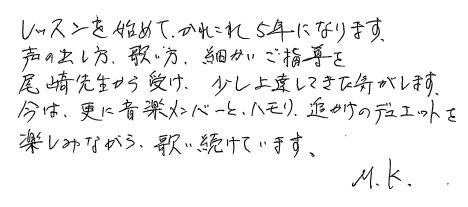 レッスンを始めて、かれこれ5年になります。
声の出し方、歌い方、細かいご指導を
尾崎先生から受け、少し上達してきた気がします。
今は、更に音楽メンバーと、ハモリ、追かけのデュエットを
楽しみながら、歌い続けています。
M.K.